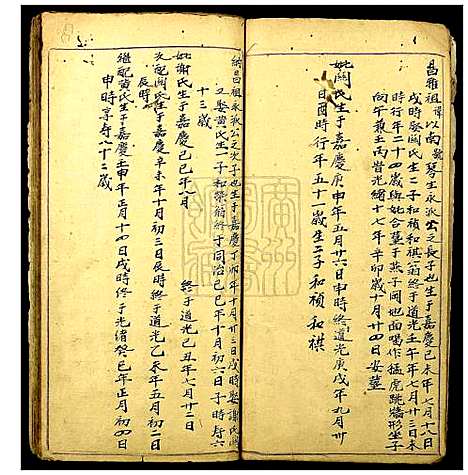 昌雅祖諱以南號琴生永派公之長子也生于嘉慶己未年七月十八日
戌時娶關氏生二子和楨和祺翁終于道光壬午年七月廿三日未
時行年二十四歲與妣合葬于燕子岡地面喝作猛虎跳牆形坐子
向午兼壬丙當光緒十七年辛卯歲十月廿四日安葬
妣關氏生于嘉慶庚申年五月廿六日申時終道光庚戌年九月廿
日酉時行年五十一歲生二子和楨和祺
昌祖永派公之次子也生于嘉慶丁卯年十月廿三日戌時娶謝氏關
又娶黃氏生一子和榮翁終于同治己巳年十月初六日子時壽六
十三歲
妣謝氏生于嘉慶己巳年八月 終于道光己丑年七月廿二日
次配關氏生于嘉慶辛未年十月初三日辰時終于道光乙未年五月初二日
辰時
繼配黃氏生于嘉慶壬申年正月十四日戌時終于光緒癸巳年正月初四日
申時享壽八十二歲